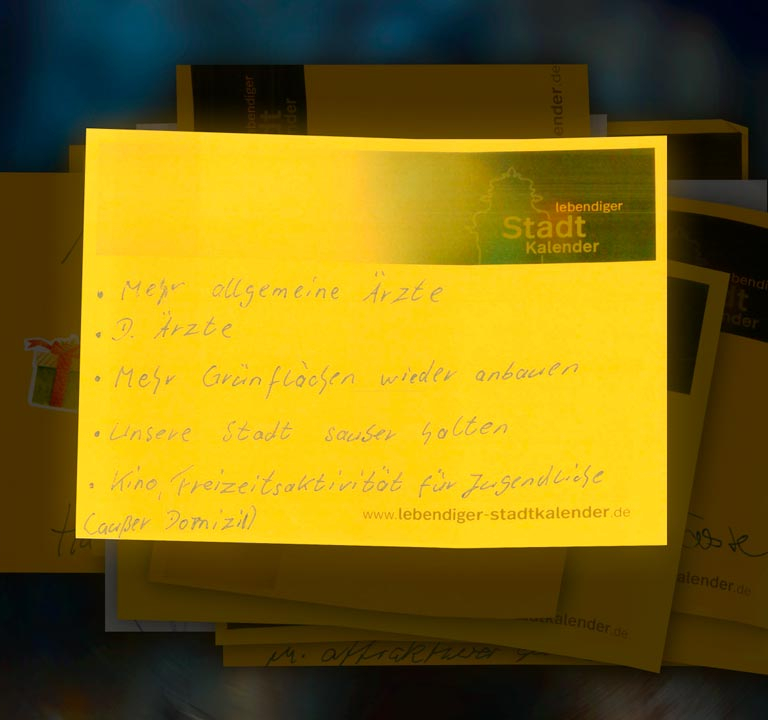 lebendiger
Stadt
Kalender
• Mehr allgemeine Ärzte
• D. Ärzte
• Mehr Grünflächen wieder anbauen
• Unsere Stadt sauber halten
• Kino, Freizeitsaktivität für Jugendliche
(außer Domizil)
www.lebendiger-stadtkalender.de
lebendiger
alender.de
stadtkalender.de
M. attraktiver